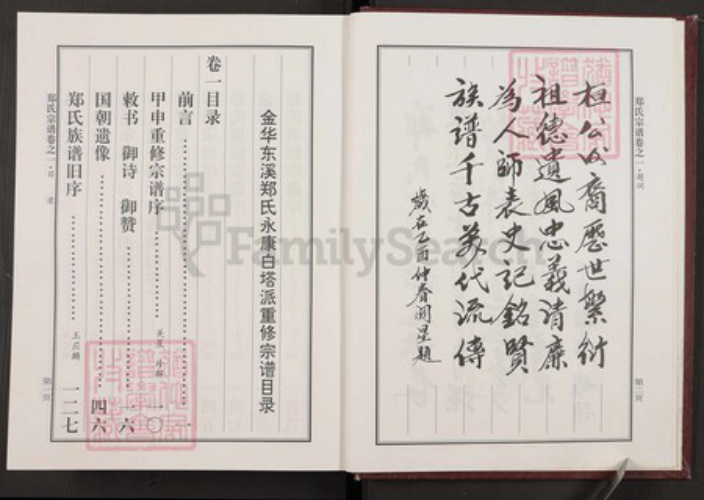 郑氏宗谱卷之一·题词
桓公公裔歷世繁衍
祖德遺風忠義清廉
為人師表史記銘賢
族谱千古萬代流傳
歲在乙酉仲春 題
第二页
金华东溪郑氏永康白塔派重修宗谱目录
卷一目录
前言 一
甲申重修宗谱序 一〇
敕书 御诗 御赞 一六
国朝遗像 四六
郑氏族谱旧序 王应麟 一二七
郑氏宗谱卷之一·目录
第一页
FamilySearch